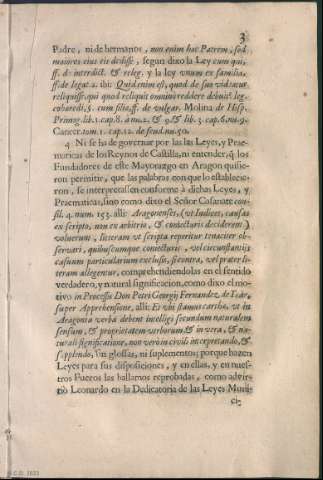 3
Padre, ni de hermanos, non enim hac Patrem, sed
maiores eius eis dedisse, segun dixo la Ley cum qui,
ff. de interdict. & releg. y la ley unum ex familia,
ff. de legat. 2. ibi: Quid enim est, quod de suo videatur
reliquisse, qui quod reliquit omnino reddere debuit leg.
cohæredi, §. cum filiæ, ff. de vulgar. Molina de Hisp.
Primog. lib. 1. cap. 8. à nu. 2. & 9. & lib. 3. cap. 6. nu. 9.
Cancer. tom. 1. cap. 12. de feud. nu. 50.
4 Ni se ha de governar por las las Leyes, y Prae-
maticas de los Reynos de Castilla, ni entender, q̃ los
Fundadores de este Mayorazgo en Aragon quisie-
ron permitir, que las palabras con que lo establecie-
ron, se interpretassen conforme à dichas Leyes, y
Praematicas, sino como dixo el Señor Casanate con-
sil. 4. num. 153. alli: Aragonenses, (vt Iudices, causas
ex scripto, non ex arbitrio, & coniecturis deciderem)
voluerum, litteram vt scripta reperitur tenaciter ob-
servari, quibuscumque coniecturis, vel circunstantijs
casuum particularium exclusis, si contra, vel præter lit-
teram allegentur, comprehendiendolas en el sentido
verdadero, y natural significacion, como dixo el mo-
tivo in Processu Don Petri Georgij Fernandez de Icar,
super Apprehensione, alli: Et vbi stamus cartæ, vt in
Aragonia verba debent intelligi secundum naturalem
sensum, & proprietatem verborum, & in vera, & na-
turali significatione, non vero in civili interpretando, &
supplendo, sin glossas, ni suplemento; porque hazen
Leyes para sus disposiciones, y en ellas, y en nues-
tros Fueros las hallamos reprobadas, como advir-
tiò Leonardo en la Dedicatoria de las Leyes Muni-
ci-